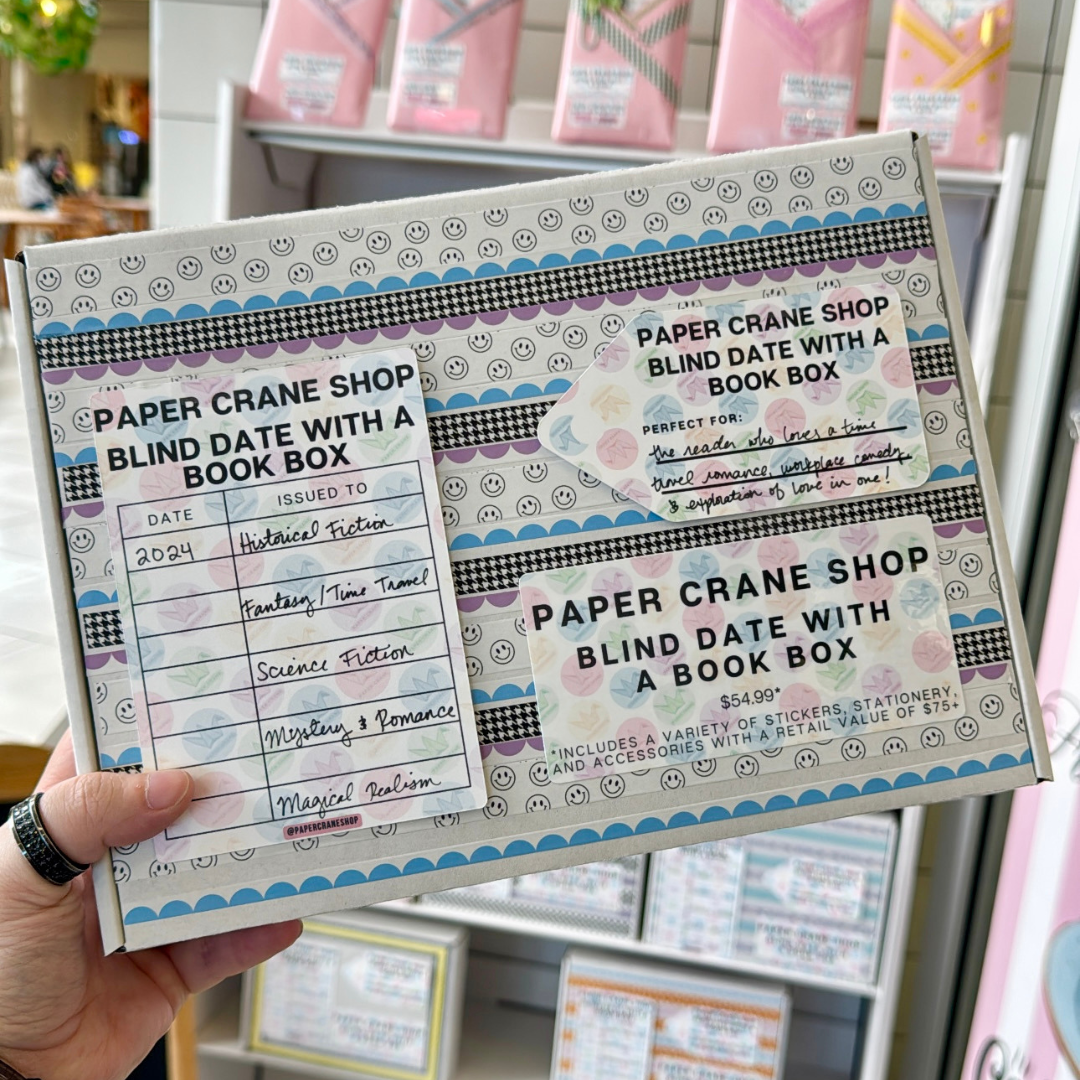 PAPER CRANE SHOP
BLIND DATE WITH A
BOOK BOX
DATE ISSUED TO
2024 Historical Fiction
Fantasy/Time Travel
Science Fiction
Mystery & Romance
Magical Realism
@PAPERCRANESHOP
PAPER CRANE SHOP
BLIND DATE WITH A
BOOK BOX
PERFECT FOR:
the reader who loves a time
travel romance, workplace comedy
& exploration of love in one!
PAPER CRANE SHOP
BLIND DATE WITH
A BOOK BOX
$54.99*
*INCLUDES A VARIETY OF STICKERS, STATIONERY,
AND ACCESSORIES WITH A RETAIL VALUE OF $75+